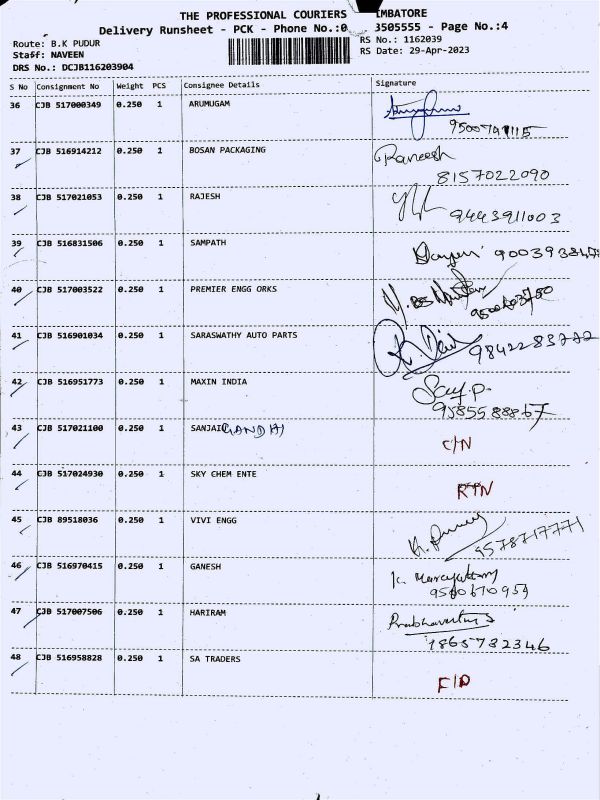 THE PROFESSIONAL COURIERS IMBATORE
Delivery Runsheet - PCK - Phone No.:0 3505555 - Page No.:4
Route: B.K PUDUR RS No.: 1162039
Staff: NAVEEN RS Date: 29-Apr-2023
DRS No.: DCJB116203904
S No Consignment No Weight PCS Consignee Details Signature
36 CJB 517000349 0.250 1 ARUMUGAM
37 CJB 516914212 0.250 1 BOSAN PACKAGING Raneesh
8157022090
38 CJB 517021053 0.250 1 RAJESH
9443911003
39 CJB 516831506 0.250 1 SAMPATH
40 CJB 517003522 0.250 1 PREMIER ENGG ORKS
41 CJB 516901034 0.250 1 SARASWATHY AUTO PARTS
9842283772
42 CJB 516951773 0.250 1 MAXIN INDIA
9585588867
43 CJB 517021100 0.250 1 SANJAI GANDHI
C/N
44 CJB 517024930 0.250 1 SKY CHEM ENTE
RTN
45 CJB 89518036 0.250 1 VIVI ENGG
9578717771
46 CJB 516970415 0.250 1 GANESH
47 CJB 517007506 0.250 1 HARIRAM
48 CJB 516958828 0.250 1 SA TRADERS